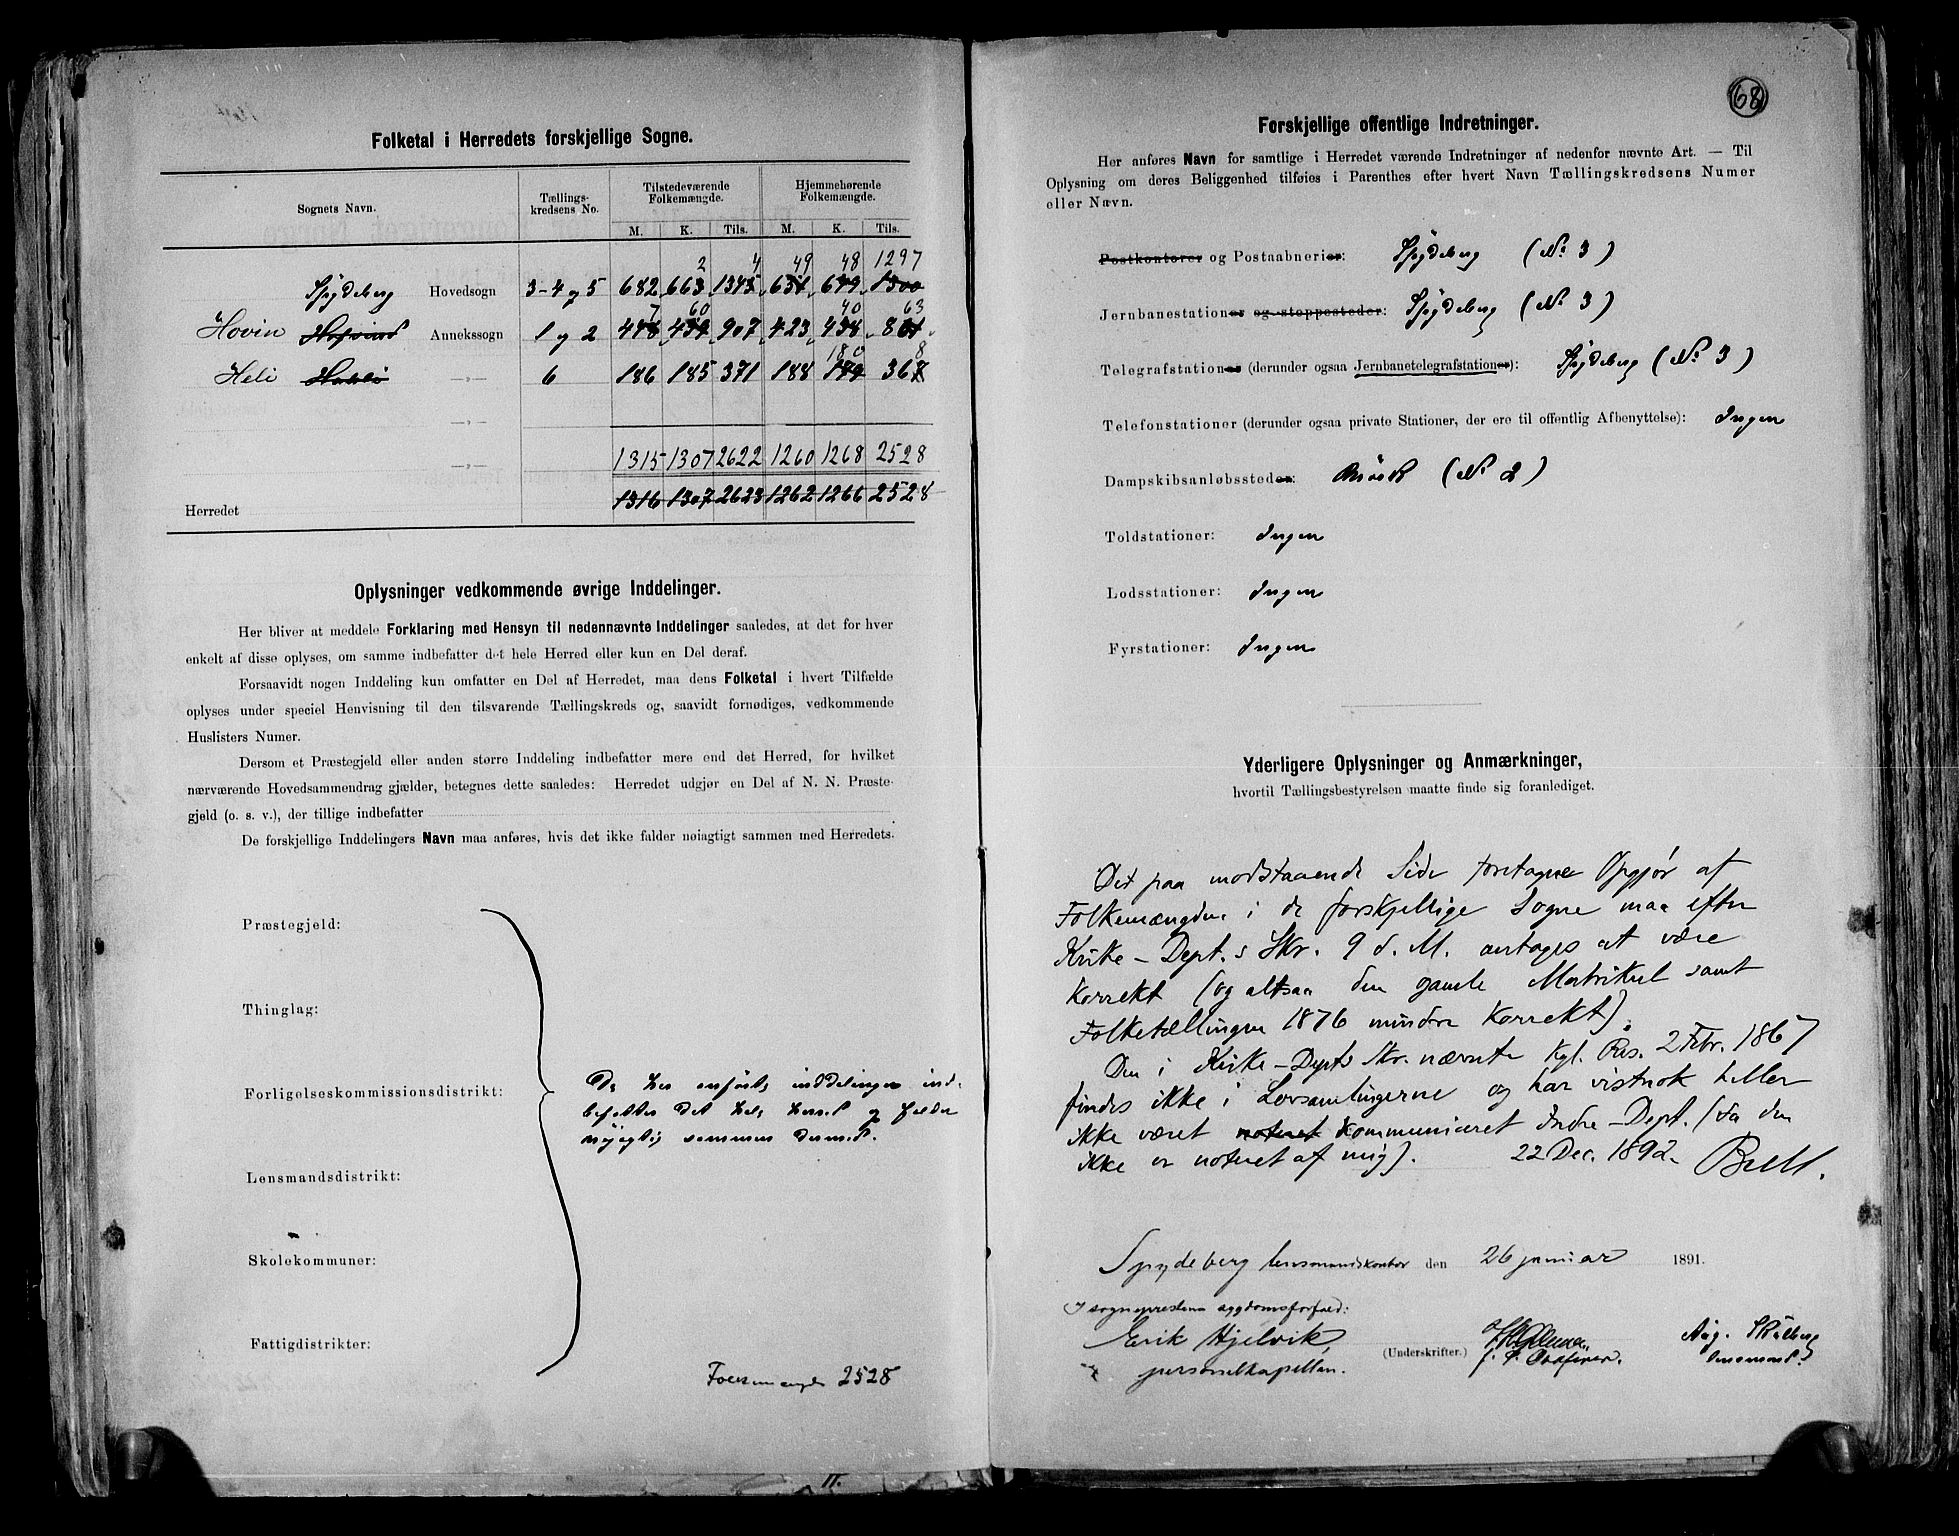 Folketal i Herredets forskjellige Sogne.
Sognets Navn. Tællings-kredsens No. Tilstedeværende Folkemængde. Hjemmehørende Folkemængde.
M. K. Tils. M. K. Tils.
2 4 49 48 1297
Spydeberg Hovedsogn 3-4 og 5 682 663 1345 651 649 1300
7 60 40 63
Hovin Annekssogn 1 og 2 448 459 907 423 438 861
180 8
Heli —„— 6 186 185 371 188 179 367
—„—
—„— 1315 1307 2622 1260 1268 2528
Herredet 1316 1307 2623 1262 1266 2528
Oplysninger vedkommende øvrige Inddelinger.
Her bliver at meddele Forklaring med Hensyn til nedennævnte Inddelinger saaledes, at det for hver
enkelt af disse oplyses, om samme indbefatter det hele Herred eller kun en Del deraf.
Forsaavidt nogen Inddeling kun omfatter en Del af Herredet, maa dens Folketal i hvert Tilfælde
oplyses under speciel Henvisning til den tilsvarende Tællingskreds og, saavidt fornødiges, vedkommende
Huslisters Numer.
Dersom et Præstegjeld eller anden større Inddeling indbefatter mere end det Herred, for hvilket
nærværende Hovedsammendrag gjælder, betegnes dette saaledes: Herredet udgjør en Del af N. N. Præste-
gjeld (o. s. v.), der tillige indbefatter
De forskjellige Inddelingers Navn maa anføres, hvis det ikke falder nøiagtigt sammen med Herredets.
Præstegjeld:
Thinglag:
Forligelseskommissionsdistrikt:
De her anførte inddelinger ind-
befatter det hele herred og falder
nøjagtig sammen dermed.
Lensmandsdistrikt:
Skolekommuner:
Fattigdistrikter:
Folkemængde 2528
68
Forskjellige offentlige Indretninger.
Her anføres Navn for samtlige i Herredet værende Indretninger af nedenfor nævnte Art. — Til
Oplysning om deres Beliggenhed tilføies i Parenthes efter hvert Navn Tællingskredsens Numer
eller Navn.
Postkontorer og Postaabnerier: Spydeberg (No 3)
Jernbanestationer og stoppesteder: Spydeberg (No 3)
Telegrafstationer (derunder ogsaa Jernbanetelegrafstationer): Spydeberg (No 3)
Telefonstationer (derunder ogsaa private Stationer, der ere til offentlig Afbenyttelse): Ingen
Dampskibsanløbssteder: (No 2)
Toldstationer: Ingen
Lodsstationer: Ingen
Fyrstationer: Ingen
Yderligere Oplysninger og Anmærkninger,
hvortil Tællingsbestyrelsen maatte finde sig foranlediget.
Det paa modstaaende Side foretagne Opgjør af
Folkemængden i de forskjellige Sogne maa efter
Kirke-Dept.s Skr. 9 d. M. antages at være
korrekt (og altsaa den gamle Matrikul samt
Folketællingen 1876 mindre korrekt).
Den i Kirke-Depts Skr. nævnte kgl. Res. 2 Febr. 1867
findes ikke i Lovsamlingerne og har vistnok heller
ikke været noteret kommuniceret Indre-Dept. (da den
ikke er noteret af mig). 22 Dec. 1892.
Spydeberg lensmandskontor den 26 januar 1891.
I sogneprestens sygdomsforfald:
Erik Hjelvik,
personelkapellan.
(Underskrifter.)
Aug. Skulberg
lensmand.